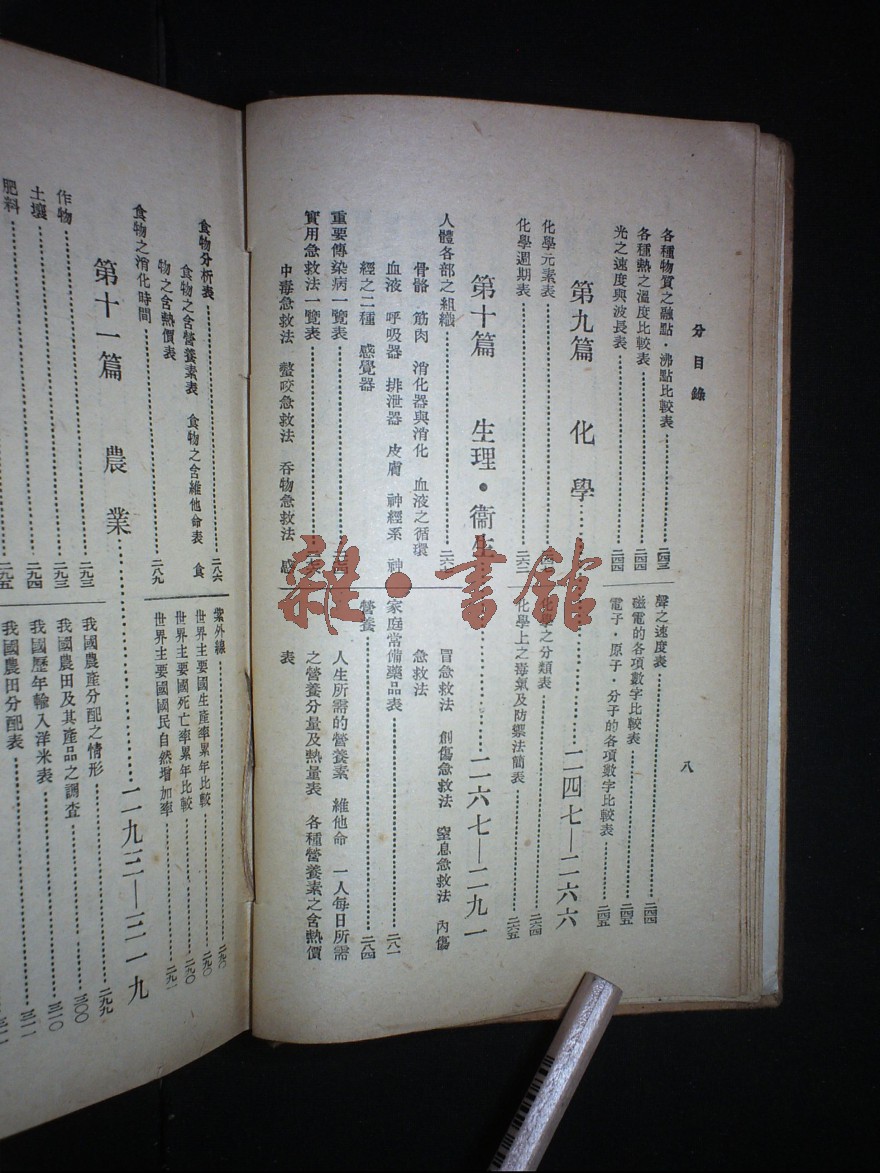 分目錄
八
各種物質之融點·沸點比較表……二四三
各種熱之溫度比較表……二四四
光之速度與波長表……二四四
聲之速度表……二四四
磁電的各項數字比較表……二四五
電子·原子·分子的各項數字比較表……二四五
第九篇 化學……二四七—二六六
化學元素表
化學週期表……二六二
化學之分類表……二六四
化學上之毒氣及防禦法簡表……二六五
第十篇 生理·衞生……二六七—二九一
人體各部之組織……二六七
骨骼 筋肉 消化器與消化 血液之循環
血液 呼吸器 排泄器 皮膚 神經系 神
經之二種 感覺器
重要傳染病一覽表
實用急救法一覽表
中毒急救法 螫咬急救法 吞物急救法 感
冒急救法 創傷急救法 窒息急救法 內傷
急救法
家庭常備藥品表……二八一
營養……二八四
人生所需的營養素 維他命 一人每日所需
之營養分量及熱量表 各種營養素之含熱價
表
食物分析表……二八六
食物之含營養素表 食物之含維他命表 食
物之含熱價表
食物之消化時間……二八九
紫外線……二九〇
世界主要國生產率累年比較……二九〇
世界主要國死亡率累年比較……二九〇
世界主要國國民自然增加率……二九一
第十一篇 農業……二九三—三一九
作物……二九三
土壤……二九三
肥料……二九四
二九五
我國農產分配之情形……二九九
我國農田及其產品之調查……三〇〇
我國歷年輸入洋米表……三一〇
我國農田分配表……三一一
雜·書館